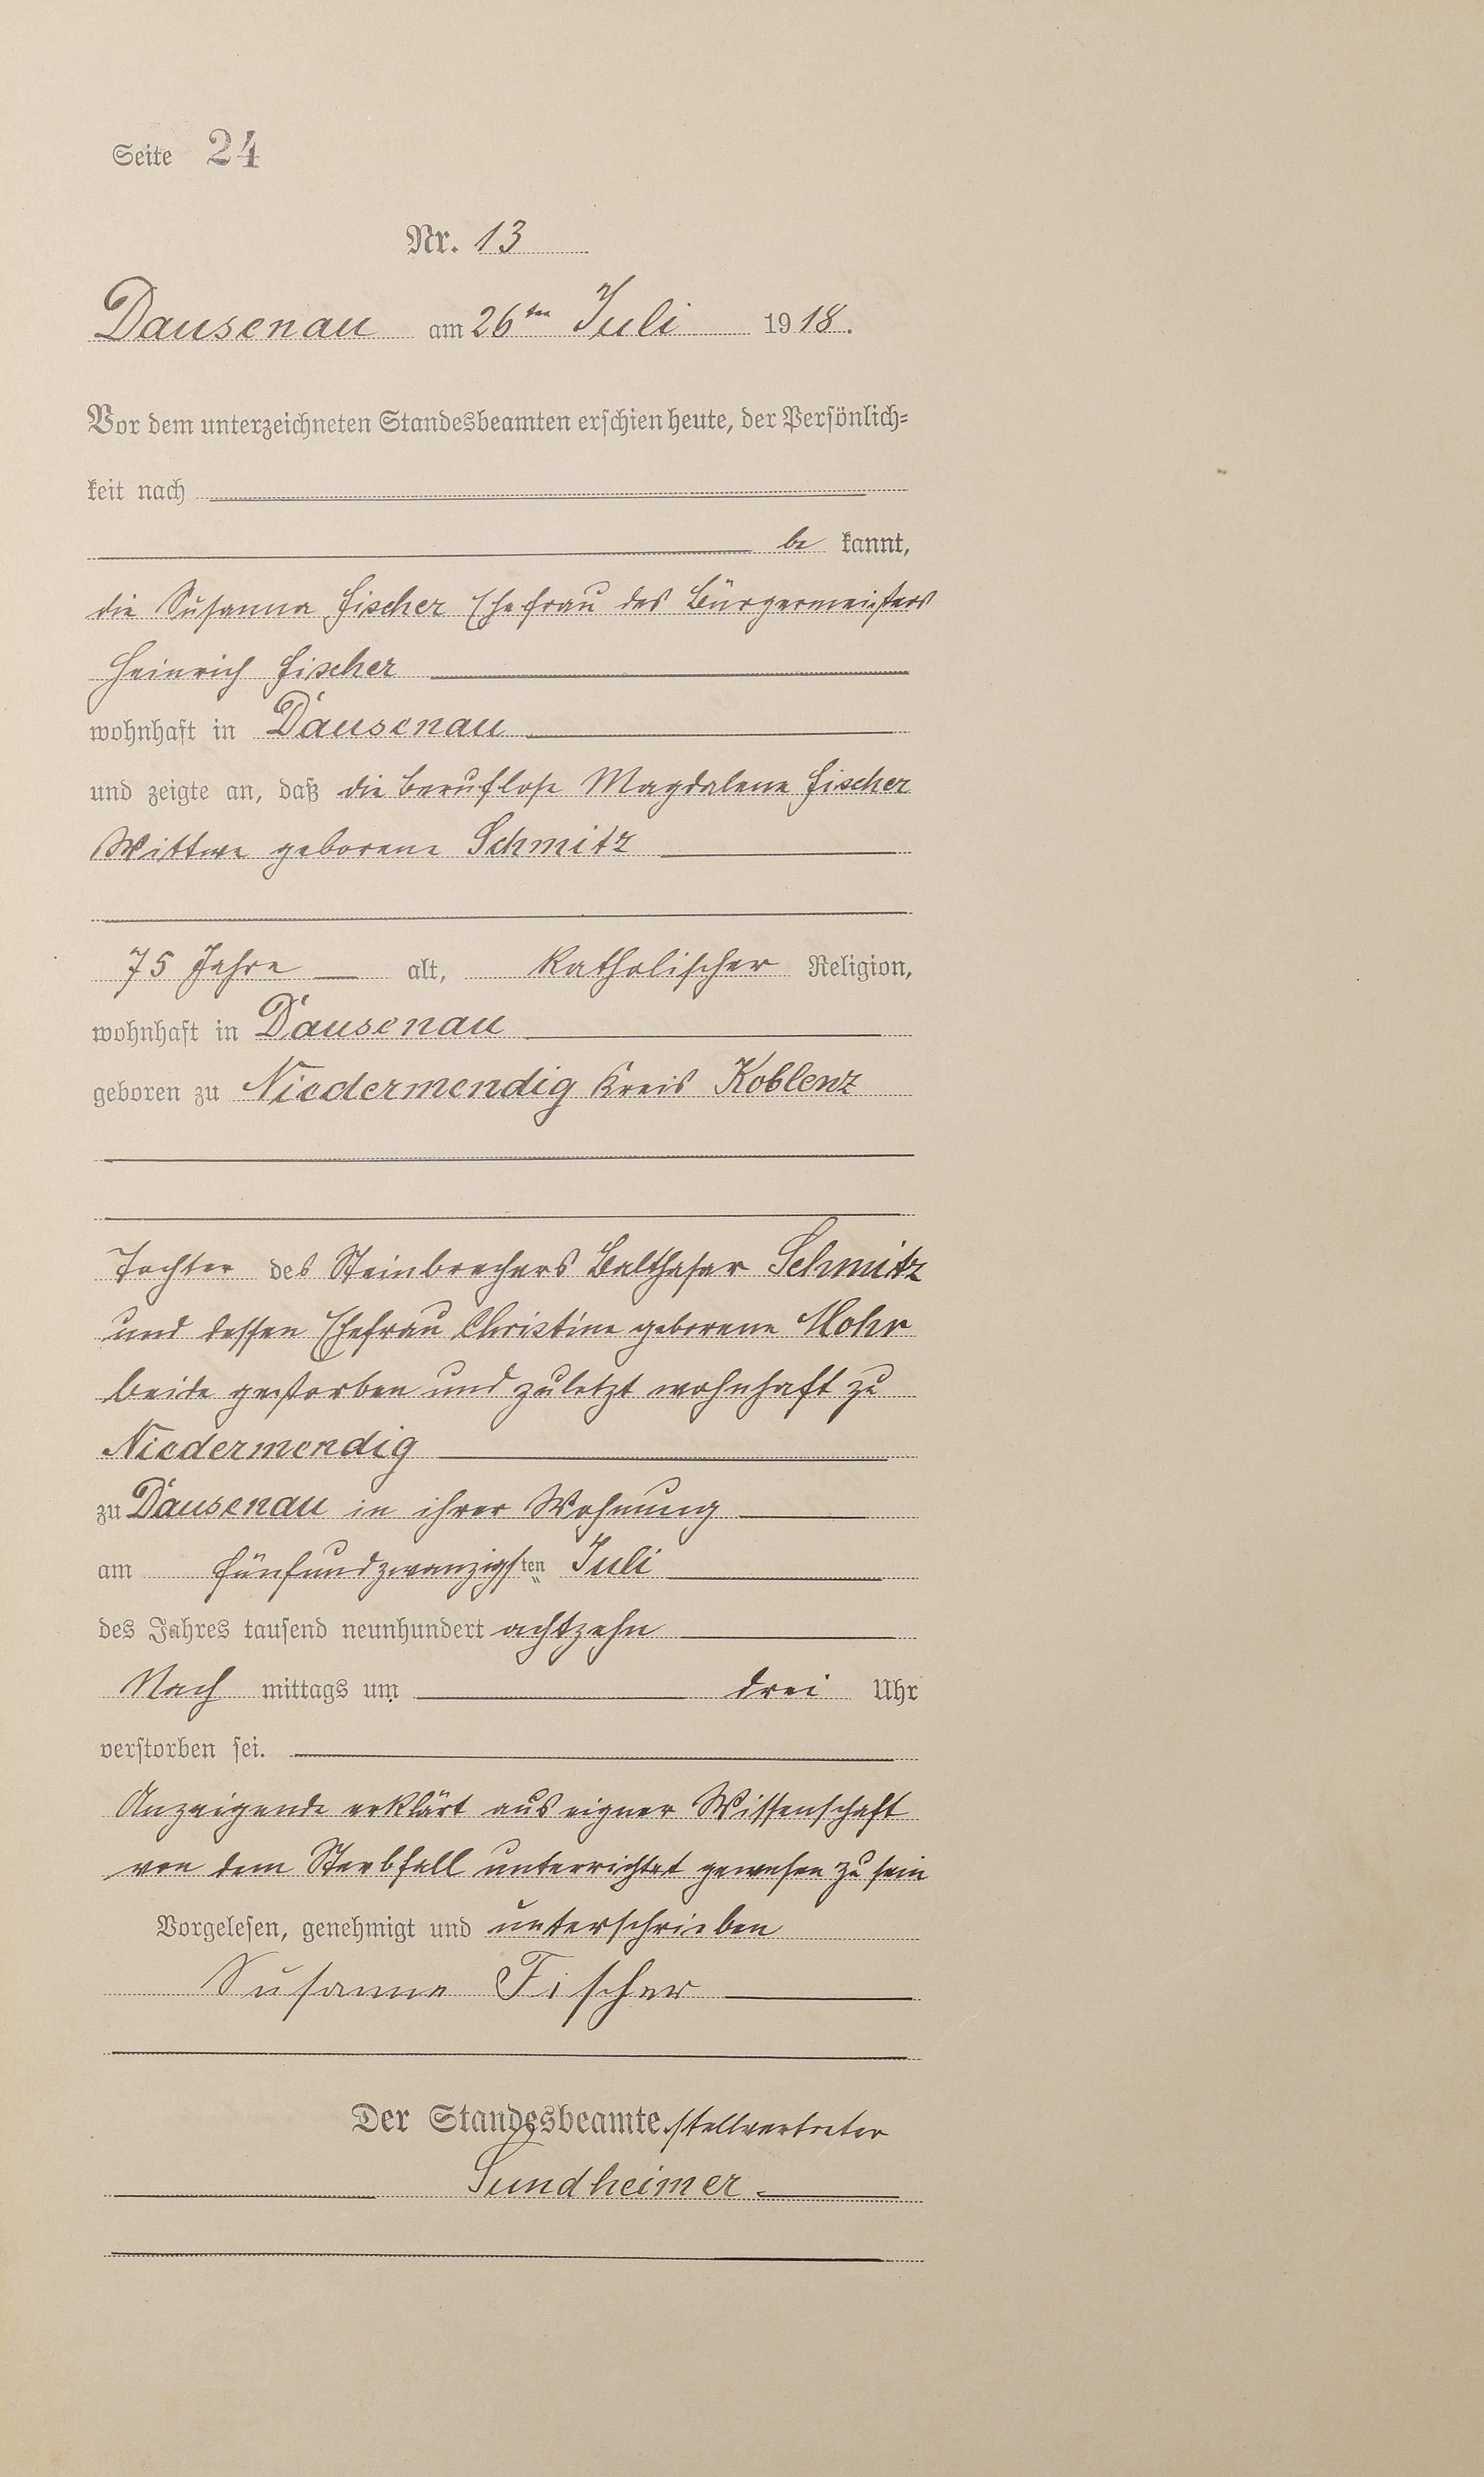 Seite 24
Nr. 13
Dausenau am 26ten Juli 1918.
Vor dem unterzeichneten Standesbeamten erschien heute, der Persönlich-
keit nach
be kannt,
die Susanna Fischer Ehefrau des Bürgermeisters
Heinrich Fischer
wohnhaft in Dausenau
und zeigte an, daß die berufslose Magdalena Fischer
Wittwe geborene Schmitz
75 Jahre alt, katholischer Religion,
wohnhaft in Dausenau
geboren zu Niedermendig Kreis Koblenz
Tochter des Steinbrechers Balthasar Schmitz
und dessen Ehefrau Christine geborene Mohr
beide gestorben und zuletzt wohnhaft zu
Niedermendig
zu Dausenau in ihrer Wohnung
am fünfundzwanzigsten Juli
des Jahres tausend neunhundert achtzehn
Nach mittags um drei Uhr
verstorben sei.
Anzeigende erklärt aus eigner Wissenschaft
von dem Sterbfall unterrichtet gewesen zu sein
Vorgelesen, genehmigt und unterschrieben
Susanna Fischer
Der Standesbeamte. stellvertreter
Sundheimer